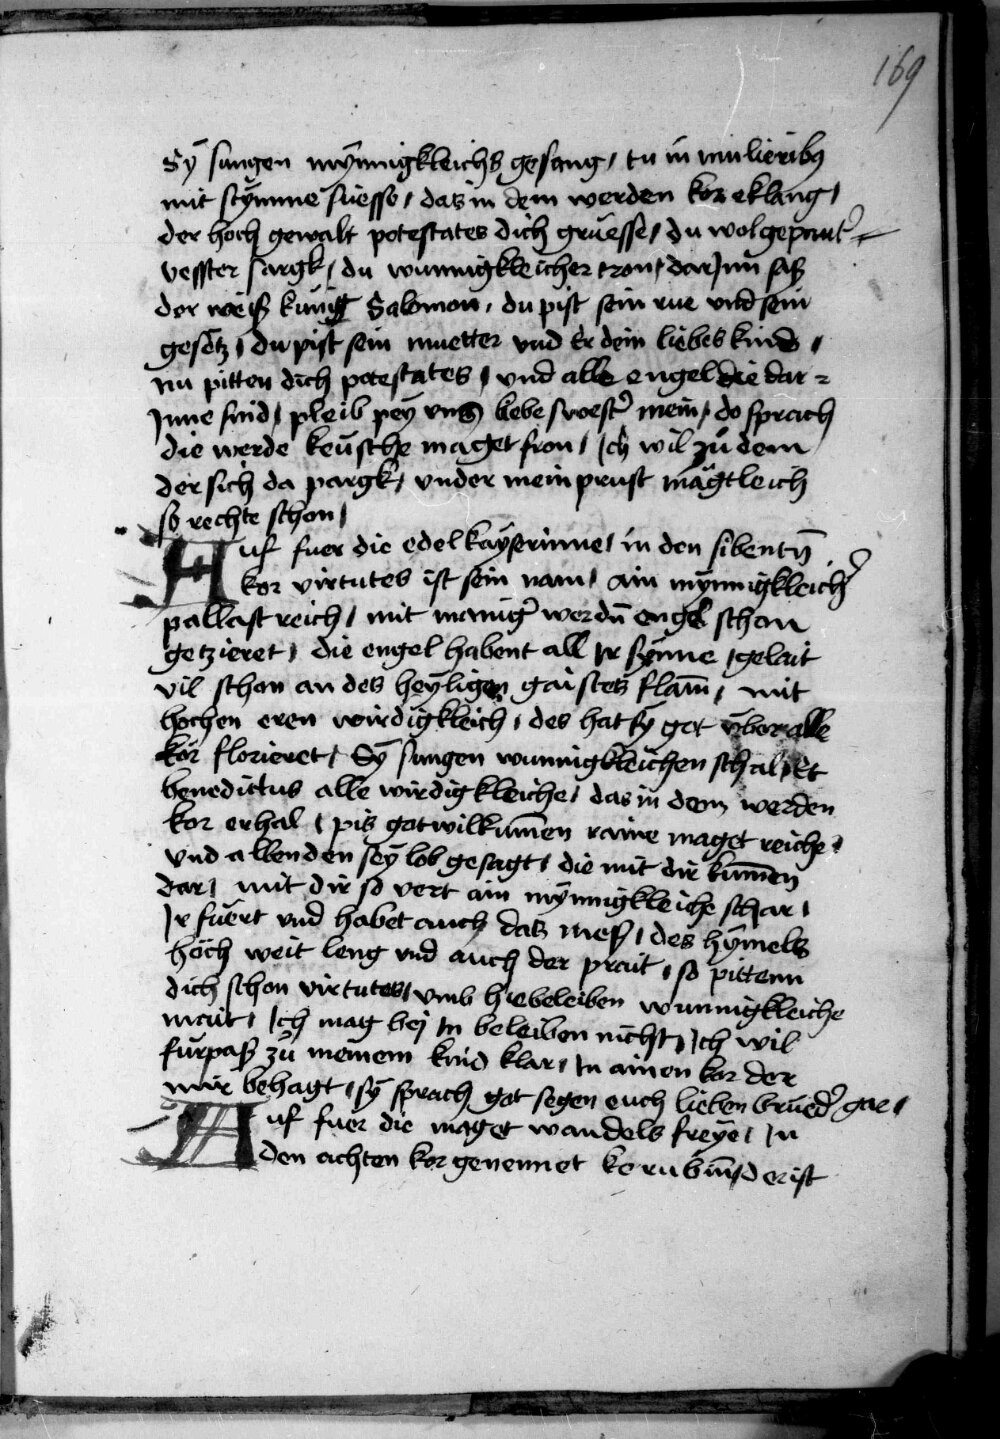 169
Sÿ sungen mÿnnigkleichs gesang / tu in mulieribꝰ
mit stÿmme suesse / das in dem werden kor eklang /
der hoch gewalt potestates dich gruesse / du wolgepaut'
vesster sargk / du wunnigkleicher tron / darJnn sasz
der weisz kunig Salomon / du pist sein rue vnd sein
gesetz / du pist sein muetter vnd Er dein liebes kind /
nu pitten dich potestates / vnd alle engel die dar =
Jnne sind / pleib peÿ vns liebe swest' mein / do sprach
die werde keusche maget fron / Jch wil zu dem
der sich da pargk / vnder mein prust mägtleich
so rechte schon /
Auf fuer die edel kaÿserinne / in den sibentn̄
kor virtutes ist sein nam / ain mÿnnigkleich'
pallast reich / mit manig' werdn̄ engel schon
getzieret / die engel habent all Jr sÿnne / gelait
vil schon an des heÿligen gaistes flam̄ / mit
hochen eren wirdigkleich / des hat sÿ got vber alle
kör florieret / Sÿ sungen wunnigkleichen schal / Et
benedictus alle wirdigkleiche / das in dem werden
kor erhal / pis got wilkum̄en raine maget reiche /
vnd allen den seÿ lob gesagt / die mit dir kum̄en
dar / mit dir so vert ain mÿnnigkleiche schar /
Jr fuert vnd habet auch das mesz / des hÿmels
höch weit leng vnd auch der prait / so pittenn
dich schon virtutes / vmb hiebeleiben wunnigkleiche
mait / Jch mag bei In beleiben nicht / Jch wil
furpasz zu meinem kind klar / In ainen kor der
mir behagt / sÿ sprach got segen euch lieben brued' gar /
Auf fuer die maget wandels freÿe / In
den achten kor genennet kerubin̄ / der ist